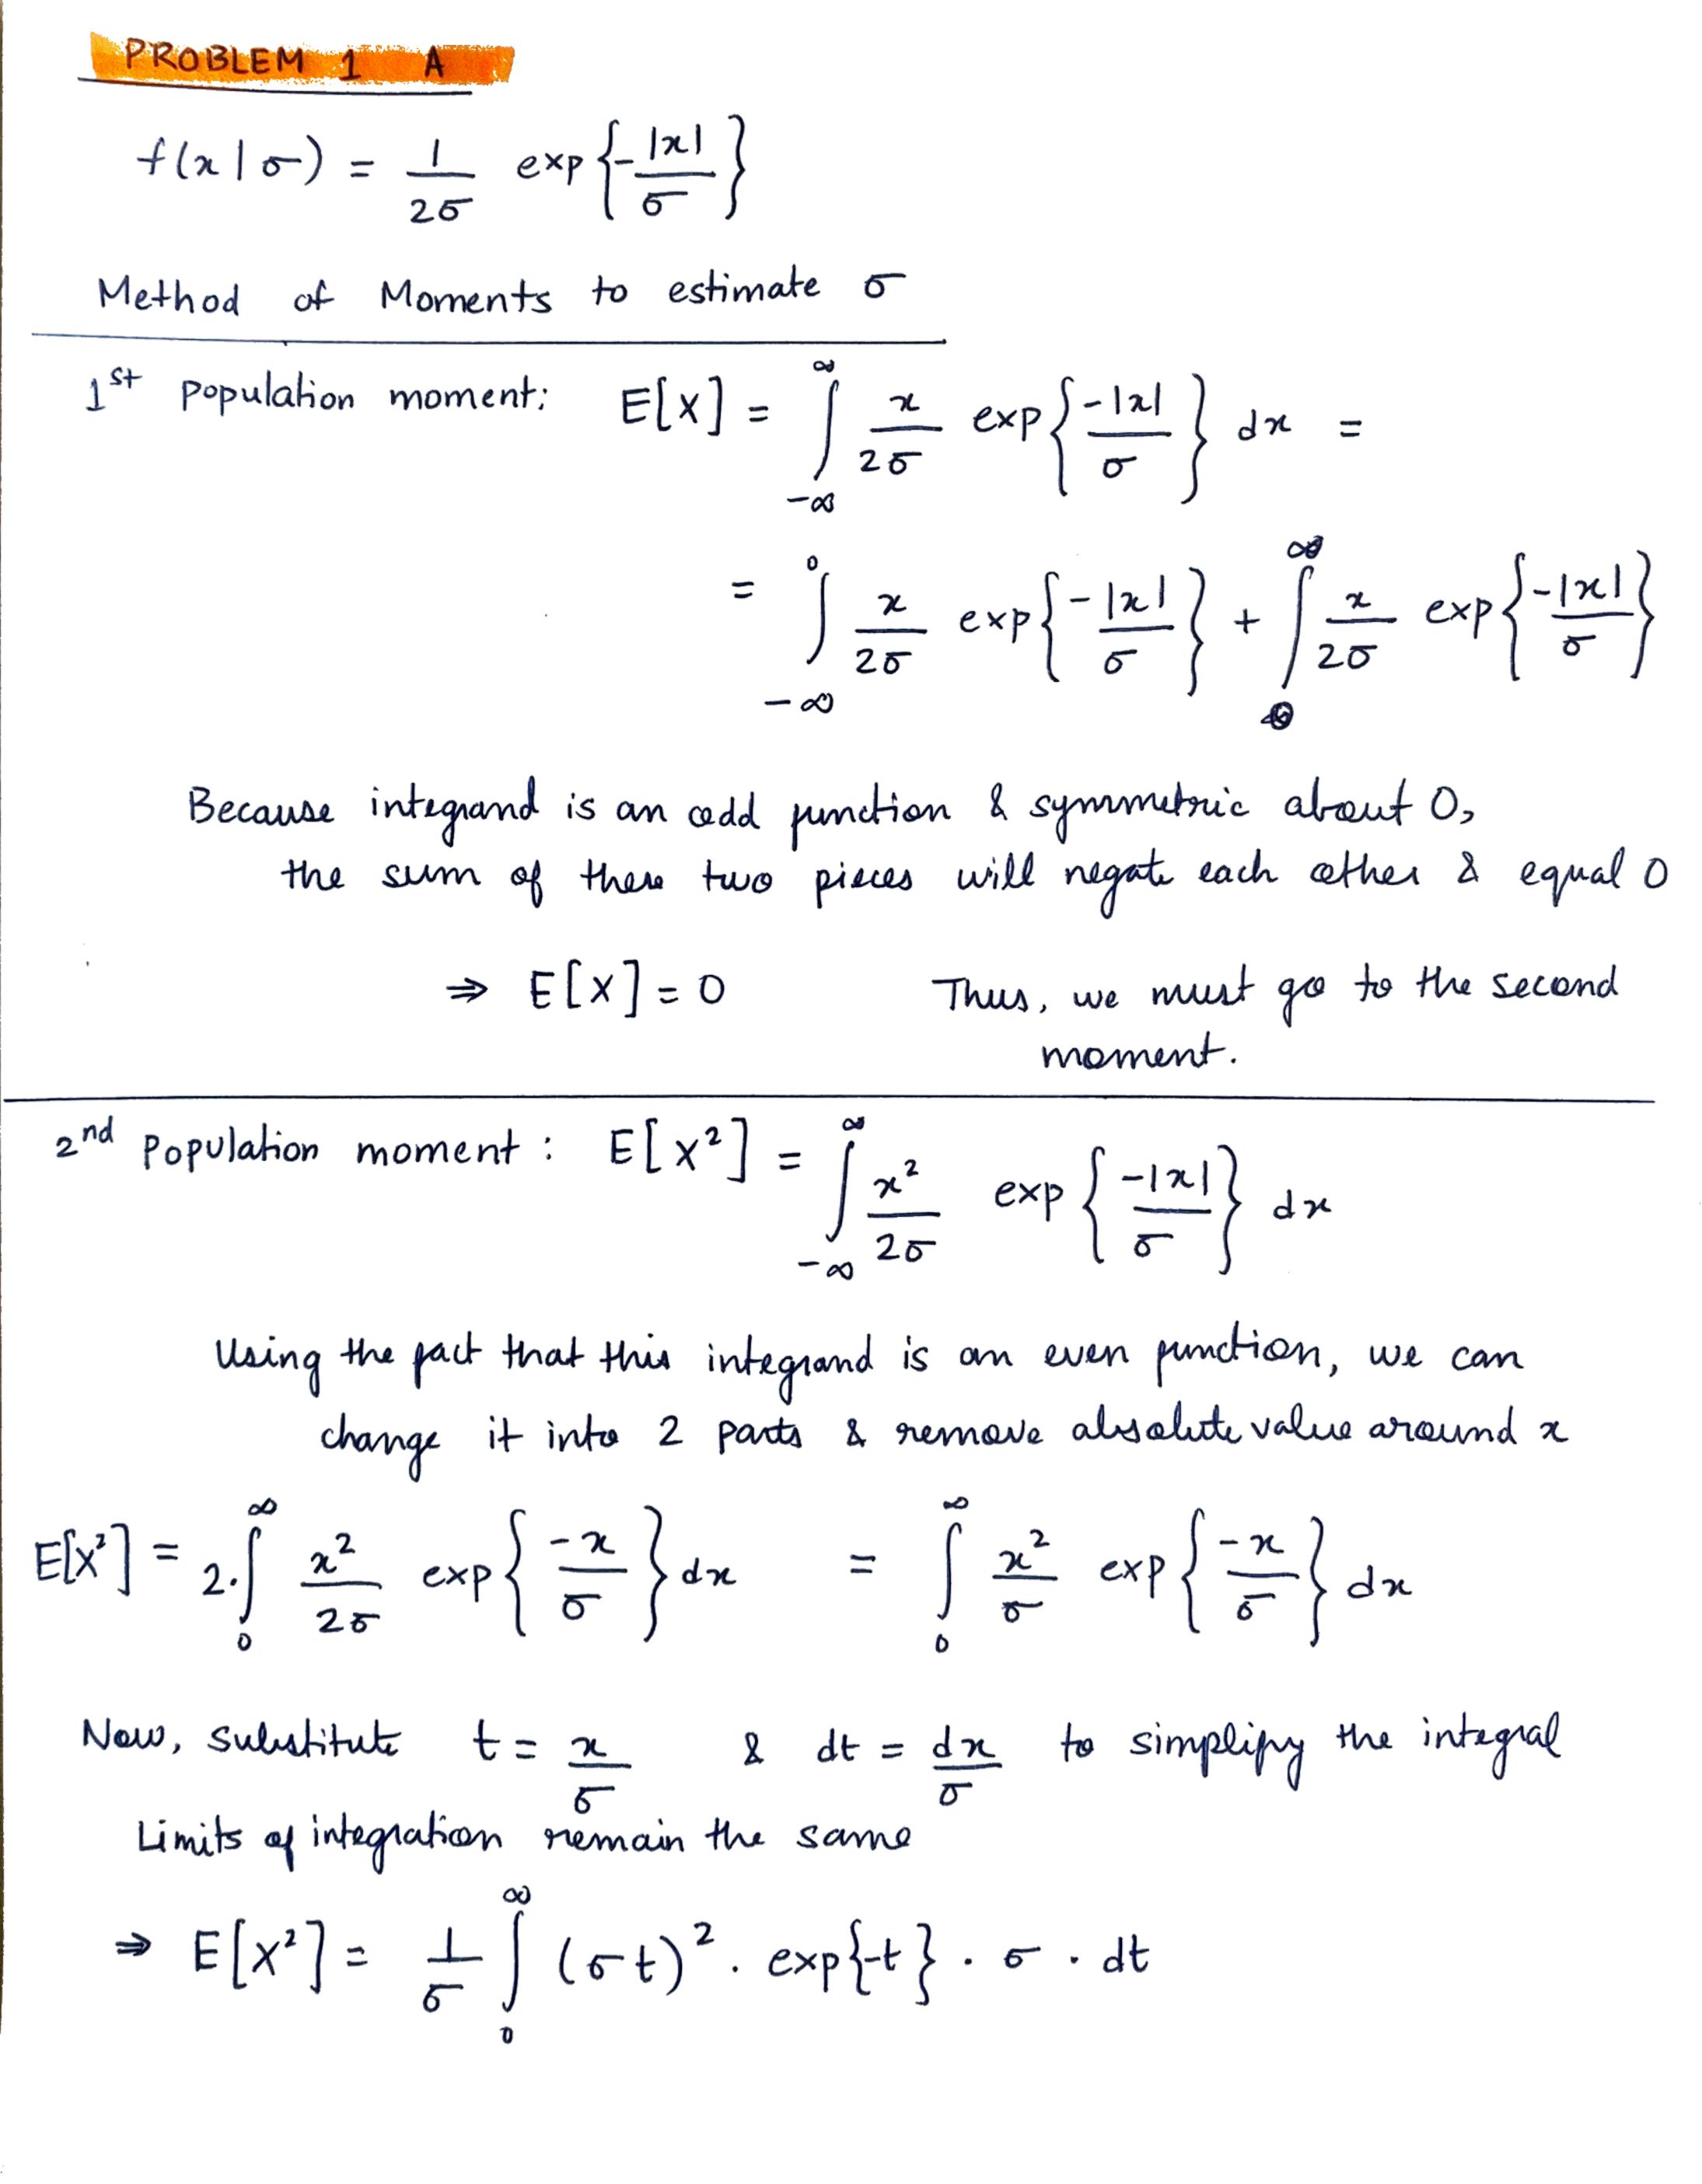 PROBLEM 1 A
f(x|σ) = 1/2σ exp{-|x|/σ}
Method of Moments to estimate σ
1st population moment: E[X] = ∫_{-∞}^{∞} x/2σ exp{-|x|/σ} dx =
= ∫_{-∞}^{0} x/2σ exp{-|x|/σ} + ∫_{0}^{∞} x/2σ exp{-|x|/σ}
Because integrand is an odd function & symmetric about 0,
the sum of these two pieces will negate each other & equal 0
⇒ E[X] = 0 Thus, we must go to the second
moment.
2nd Population moment : E[X²] = ∫_{-∞}^{∞} x²/2σ exp{-|x|/σ} dx
Using the fact that this integrand is an even function, we can
change it into 2 parts & remove absolute value around x
E[X²] = 2·∫_{0}^{∞} x²/2σ exp{-x/σ} dx = ∫_{0}^{∞} x²/σ exp{-x/σ} dx
Now, substitute t = x/σ & dt = dx/σ to simplify the integral
Limits of integration remain the same
⇒ E[X²] = 1/σ ∫_{0}^{∞} (σt)² · exp{-t} · σ · dt